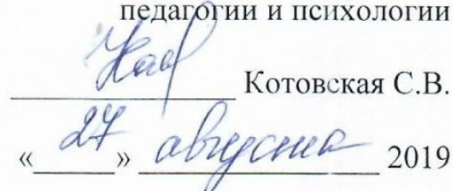 педагогии и психологии
Котовская С.В.
«27» августа 2019